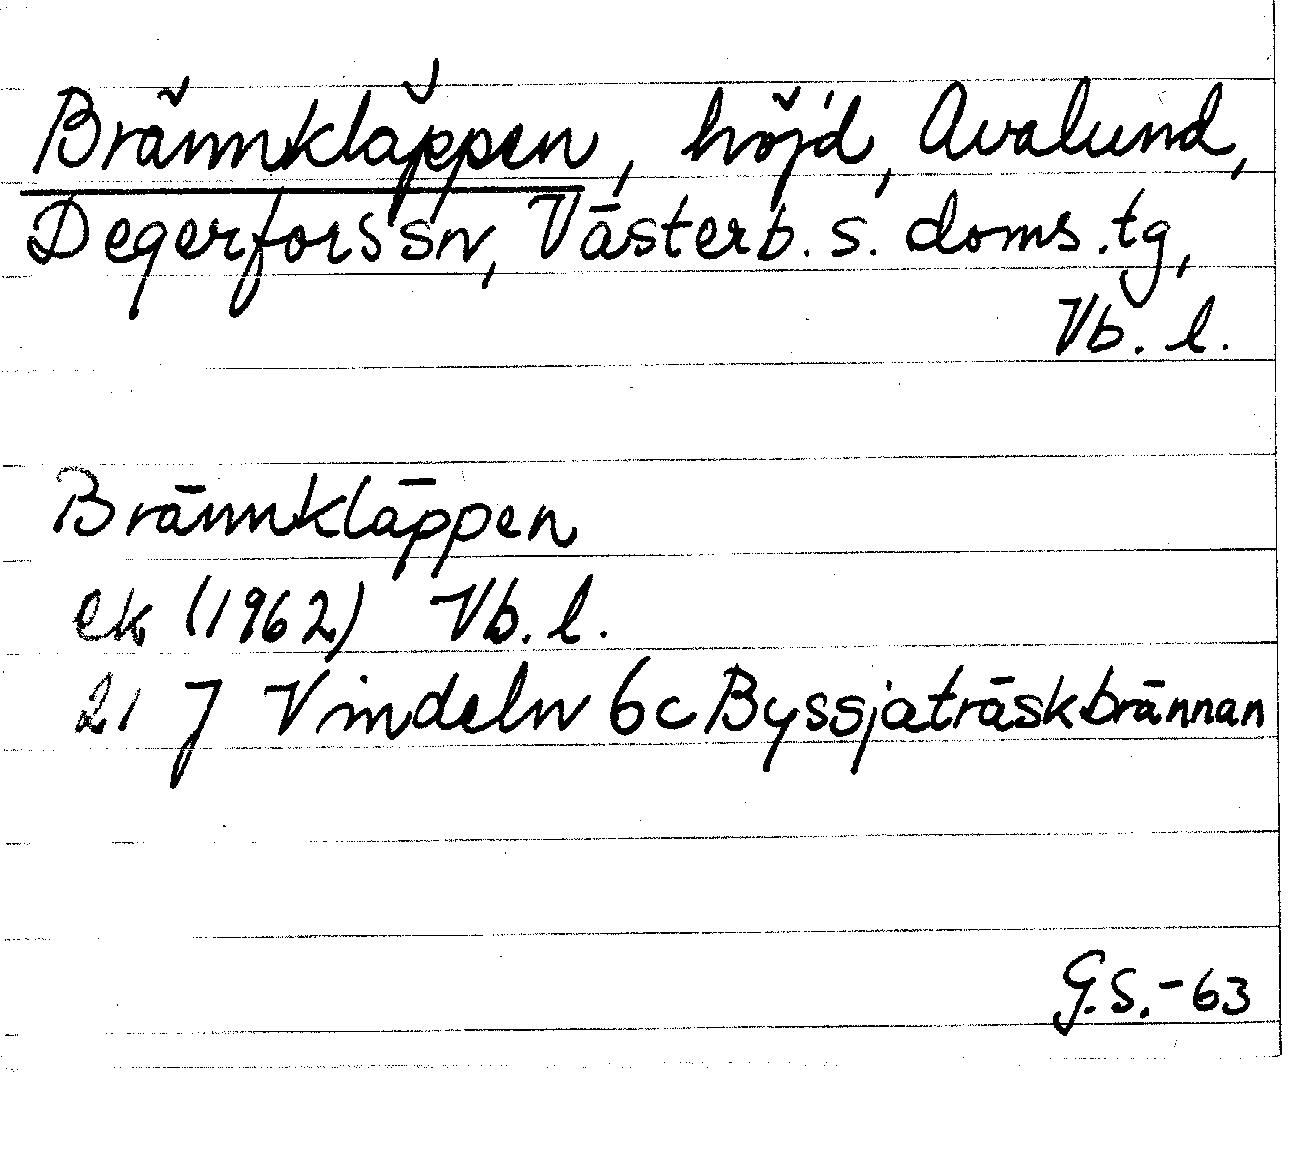 Brännkläppen, höjd, Avalund,
Degerfors sn, Västerb. s. doms. tg,
Vb. l.
Brännkläppen
ek (1962) Vb. l.
21 J Vindeln 6c Byssjaträskbrännan
G.S.-63